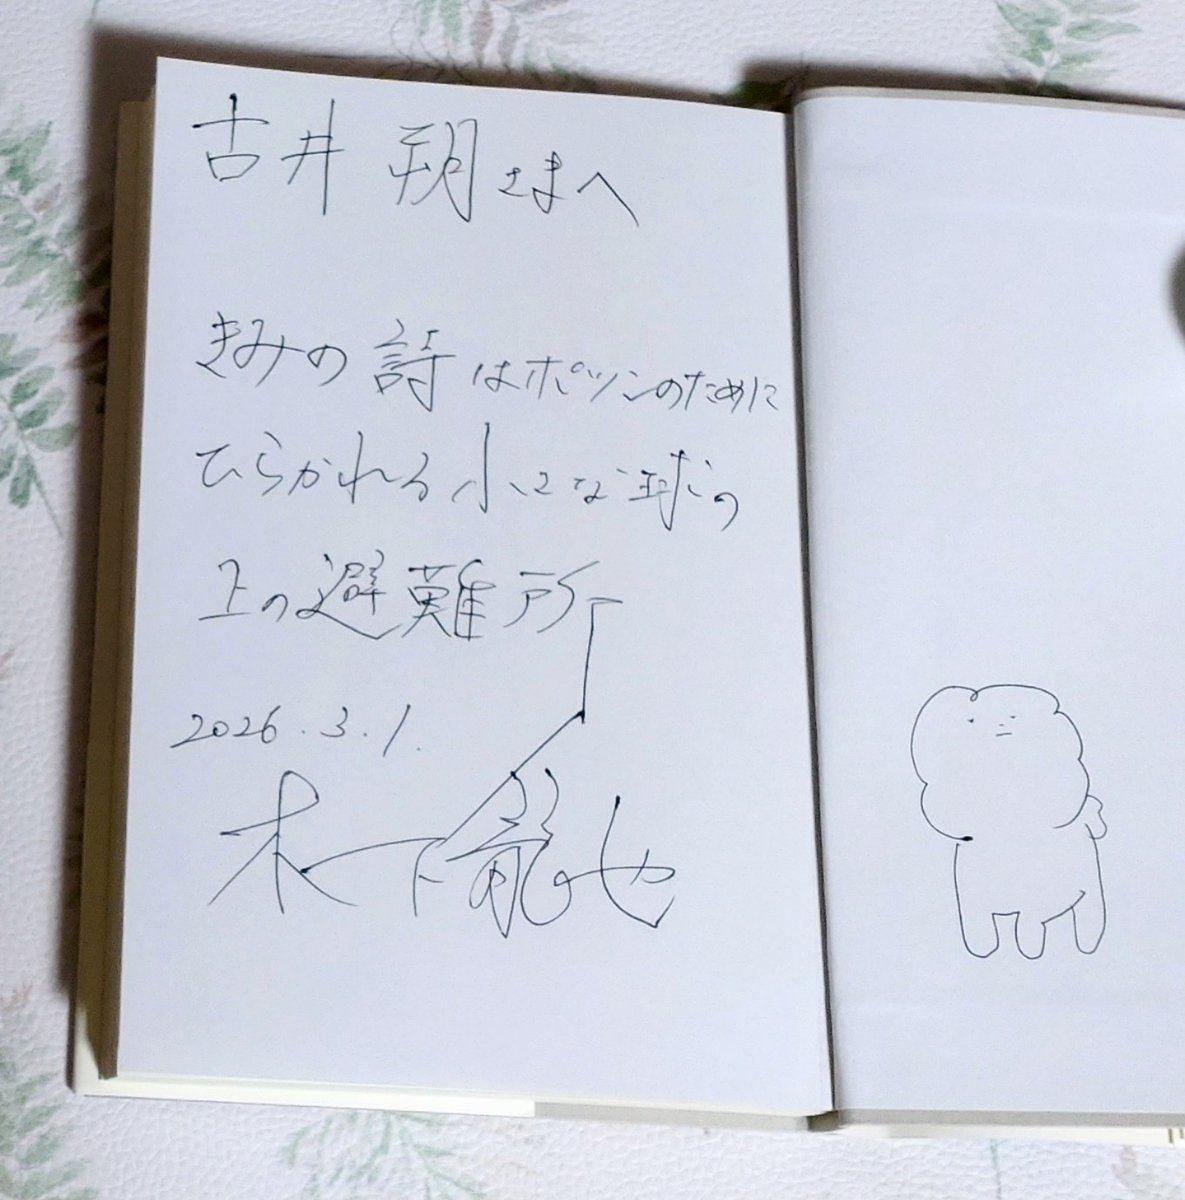 古井 朔さまへ
きみの詩はポツンのために
ひらかれる小さな球の
上の避難所
2026.3.1.
木下龍也